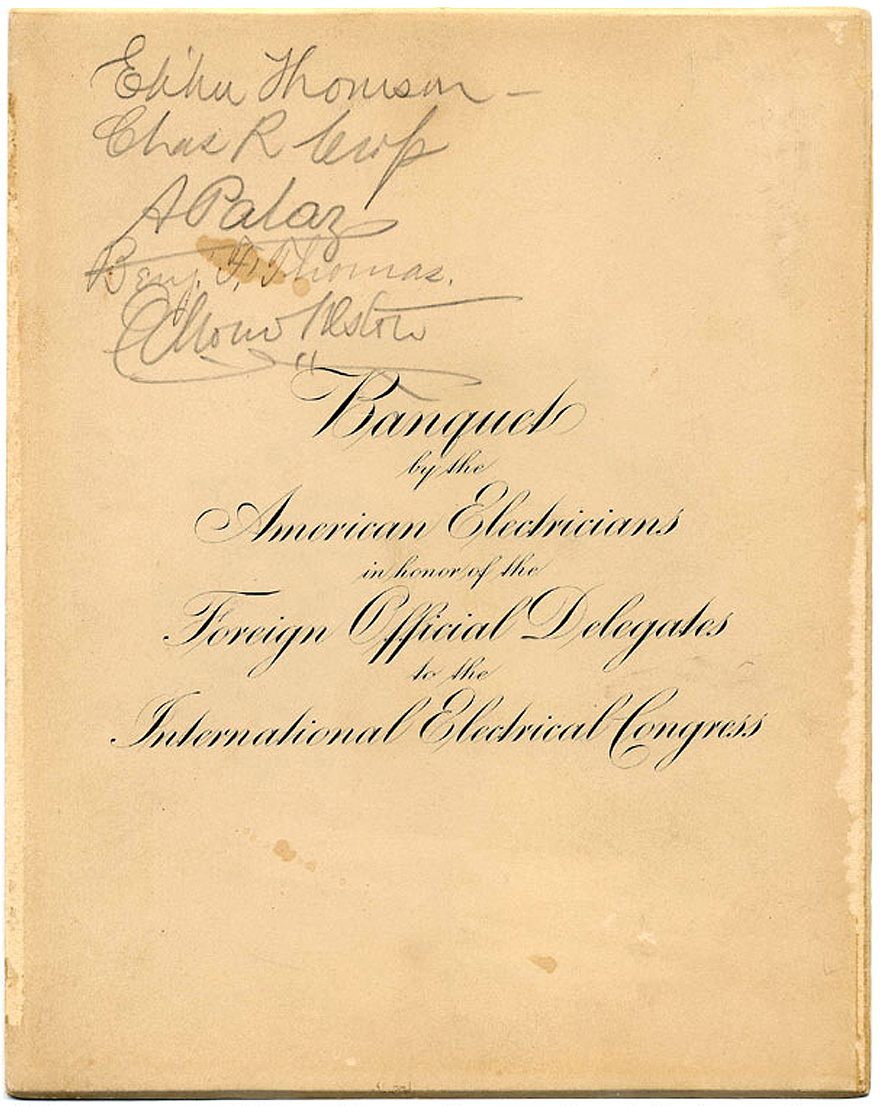 Elihu Thomson —
Chas R Cross
A Palaz
Benj. F. Thomas.
Banquet
by the
American Electricians
in honor of the
Foreign Official Delegates
to the
International Electrical Congress